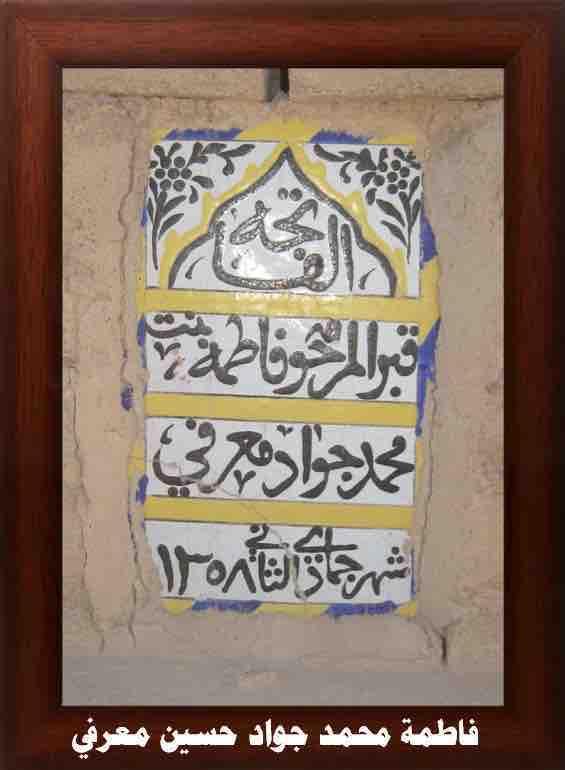 الفاتحة
قبر المرحوم فاطمه بنت
محمد جواد معرفي
شهر جمادي الثاني ١٣٥٨
فاطمة محمد جواد حسين معرفي